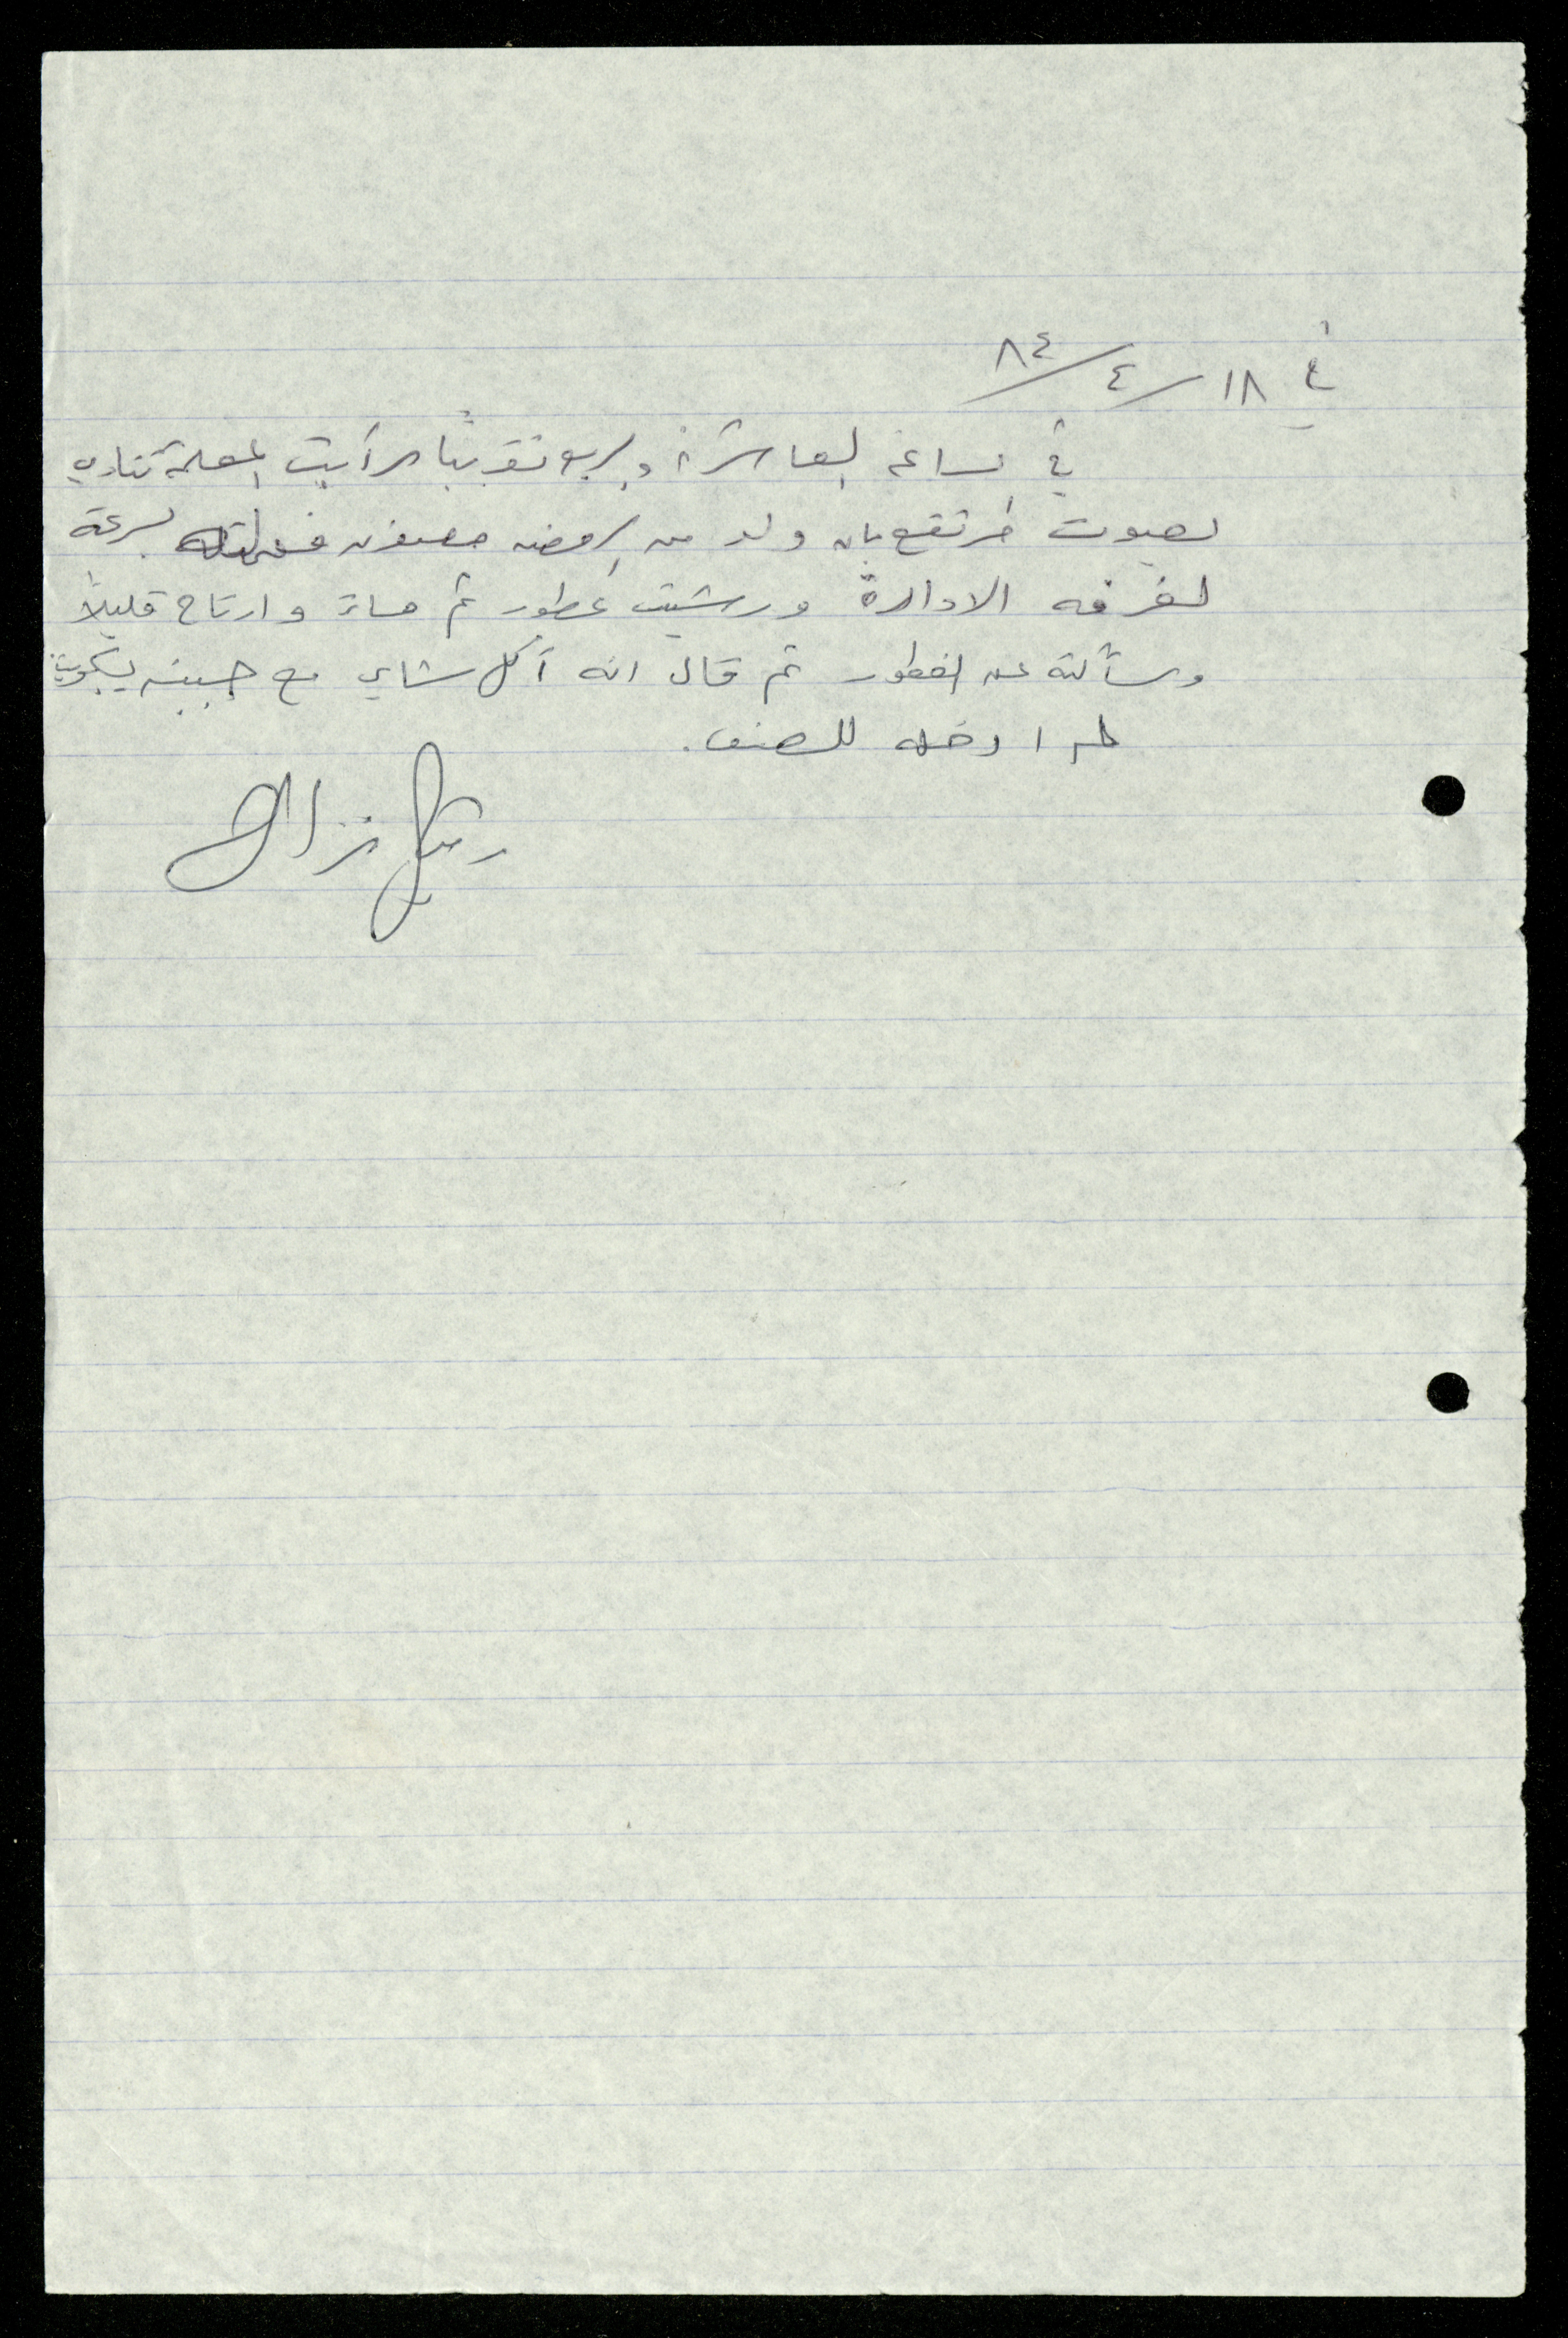 في ١٨/٤/٨٤
في الساعة العاشرة والربع تقريباً رأيت المعلمة تنادي
بصوت مرتفع بان ولد من الروضه فحملته بسرعة
لغرفه الادارة ورشيت عطور ثم ماء وارتاح قليلاً
وسألته عن الفطور ثم قال انه أكل شاي مع جبنه بسكويت
ثم ادخله للصف.
نزال